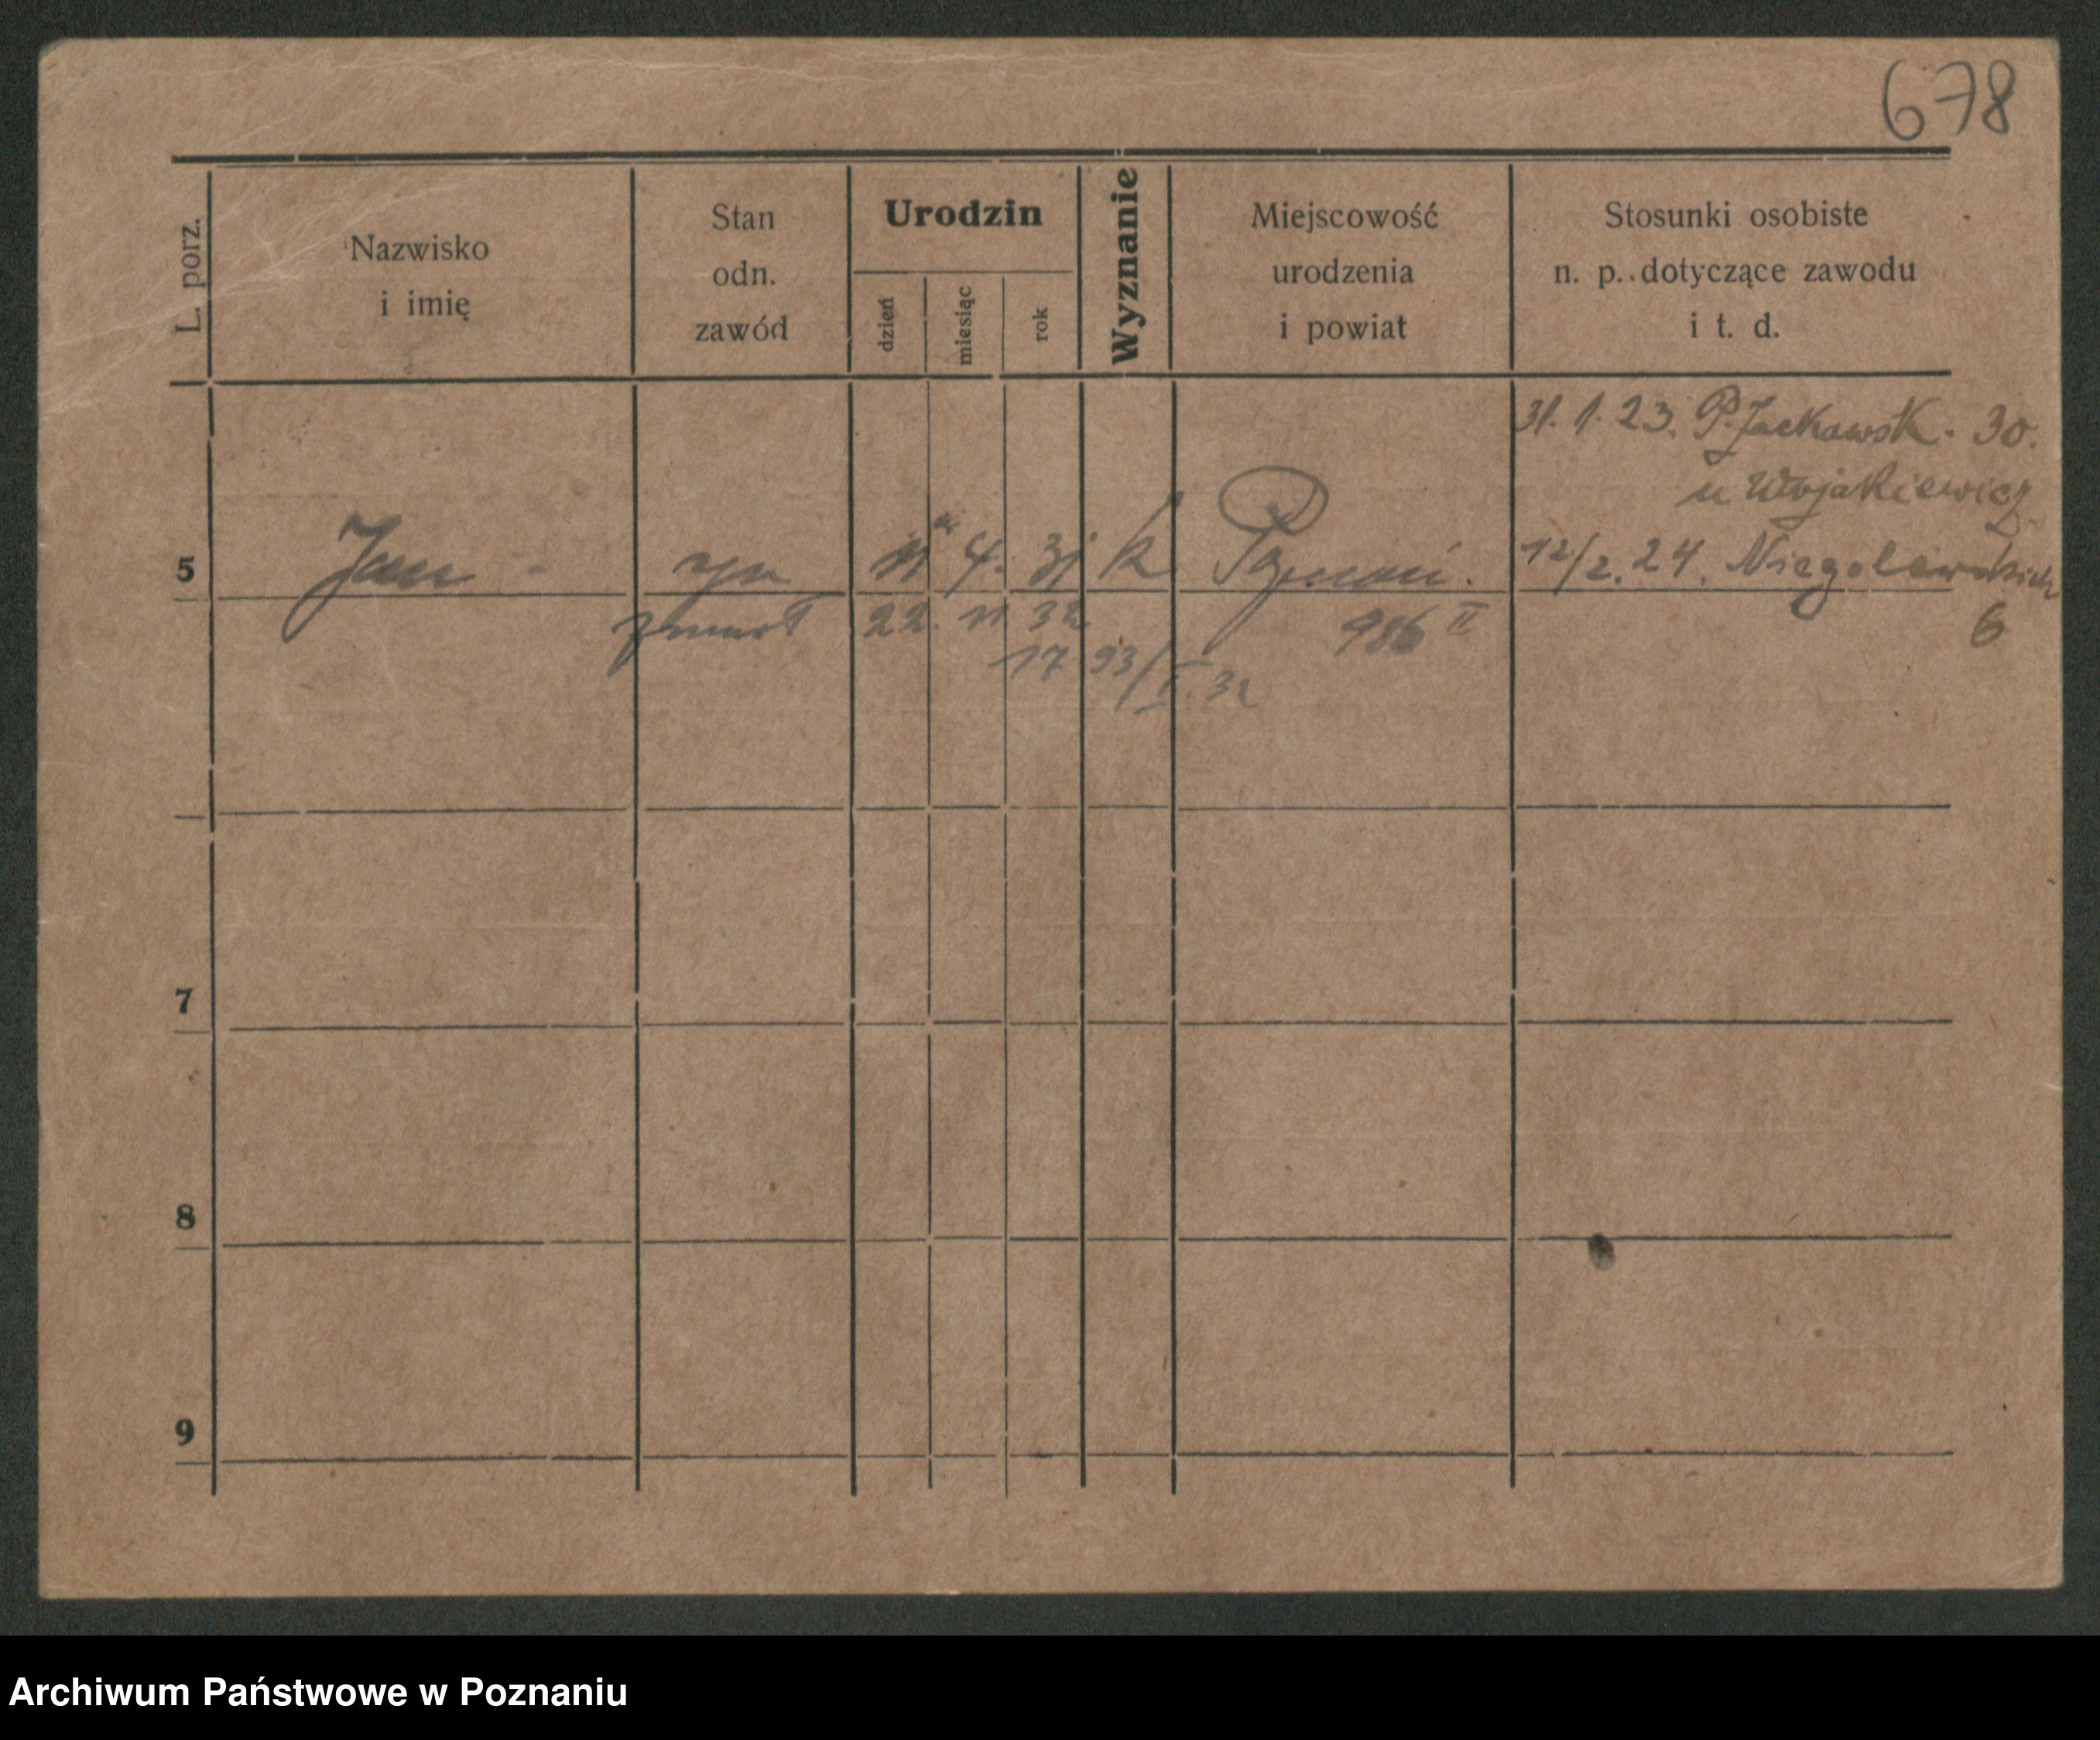 678
L. porz.
Nazwisko
i imię
Stan
odn.
zawód
Urodzin
dzień
miesiąc
rok
Wyznanie
Miejscowość
urodzenia
i powiat
Stosunki osobiste
n. p. dotyczące zawodu
i t. d.
31. 1. 23. P. Jackowsk. 30.
u Wojakiewicz
5 Jan - syn 4. 31 k Poznań. 12/2. 24. Niegolewskich
zmarł 22. 32 986 II 6
17 93/I. 32
7
8
9
Archiwum Państwowe w Poznaniu